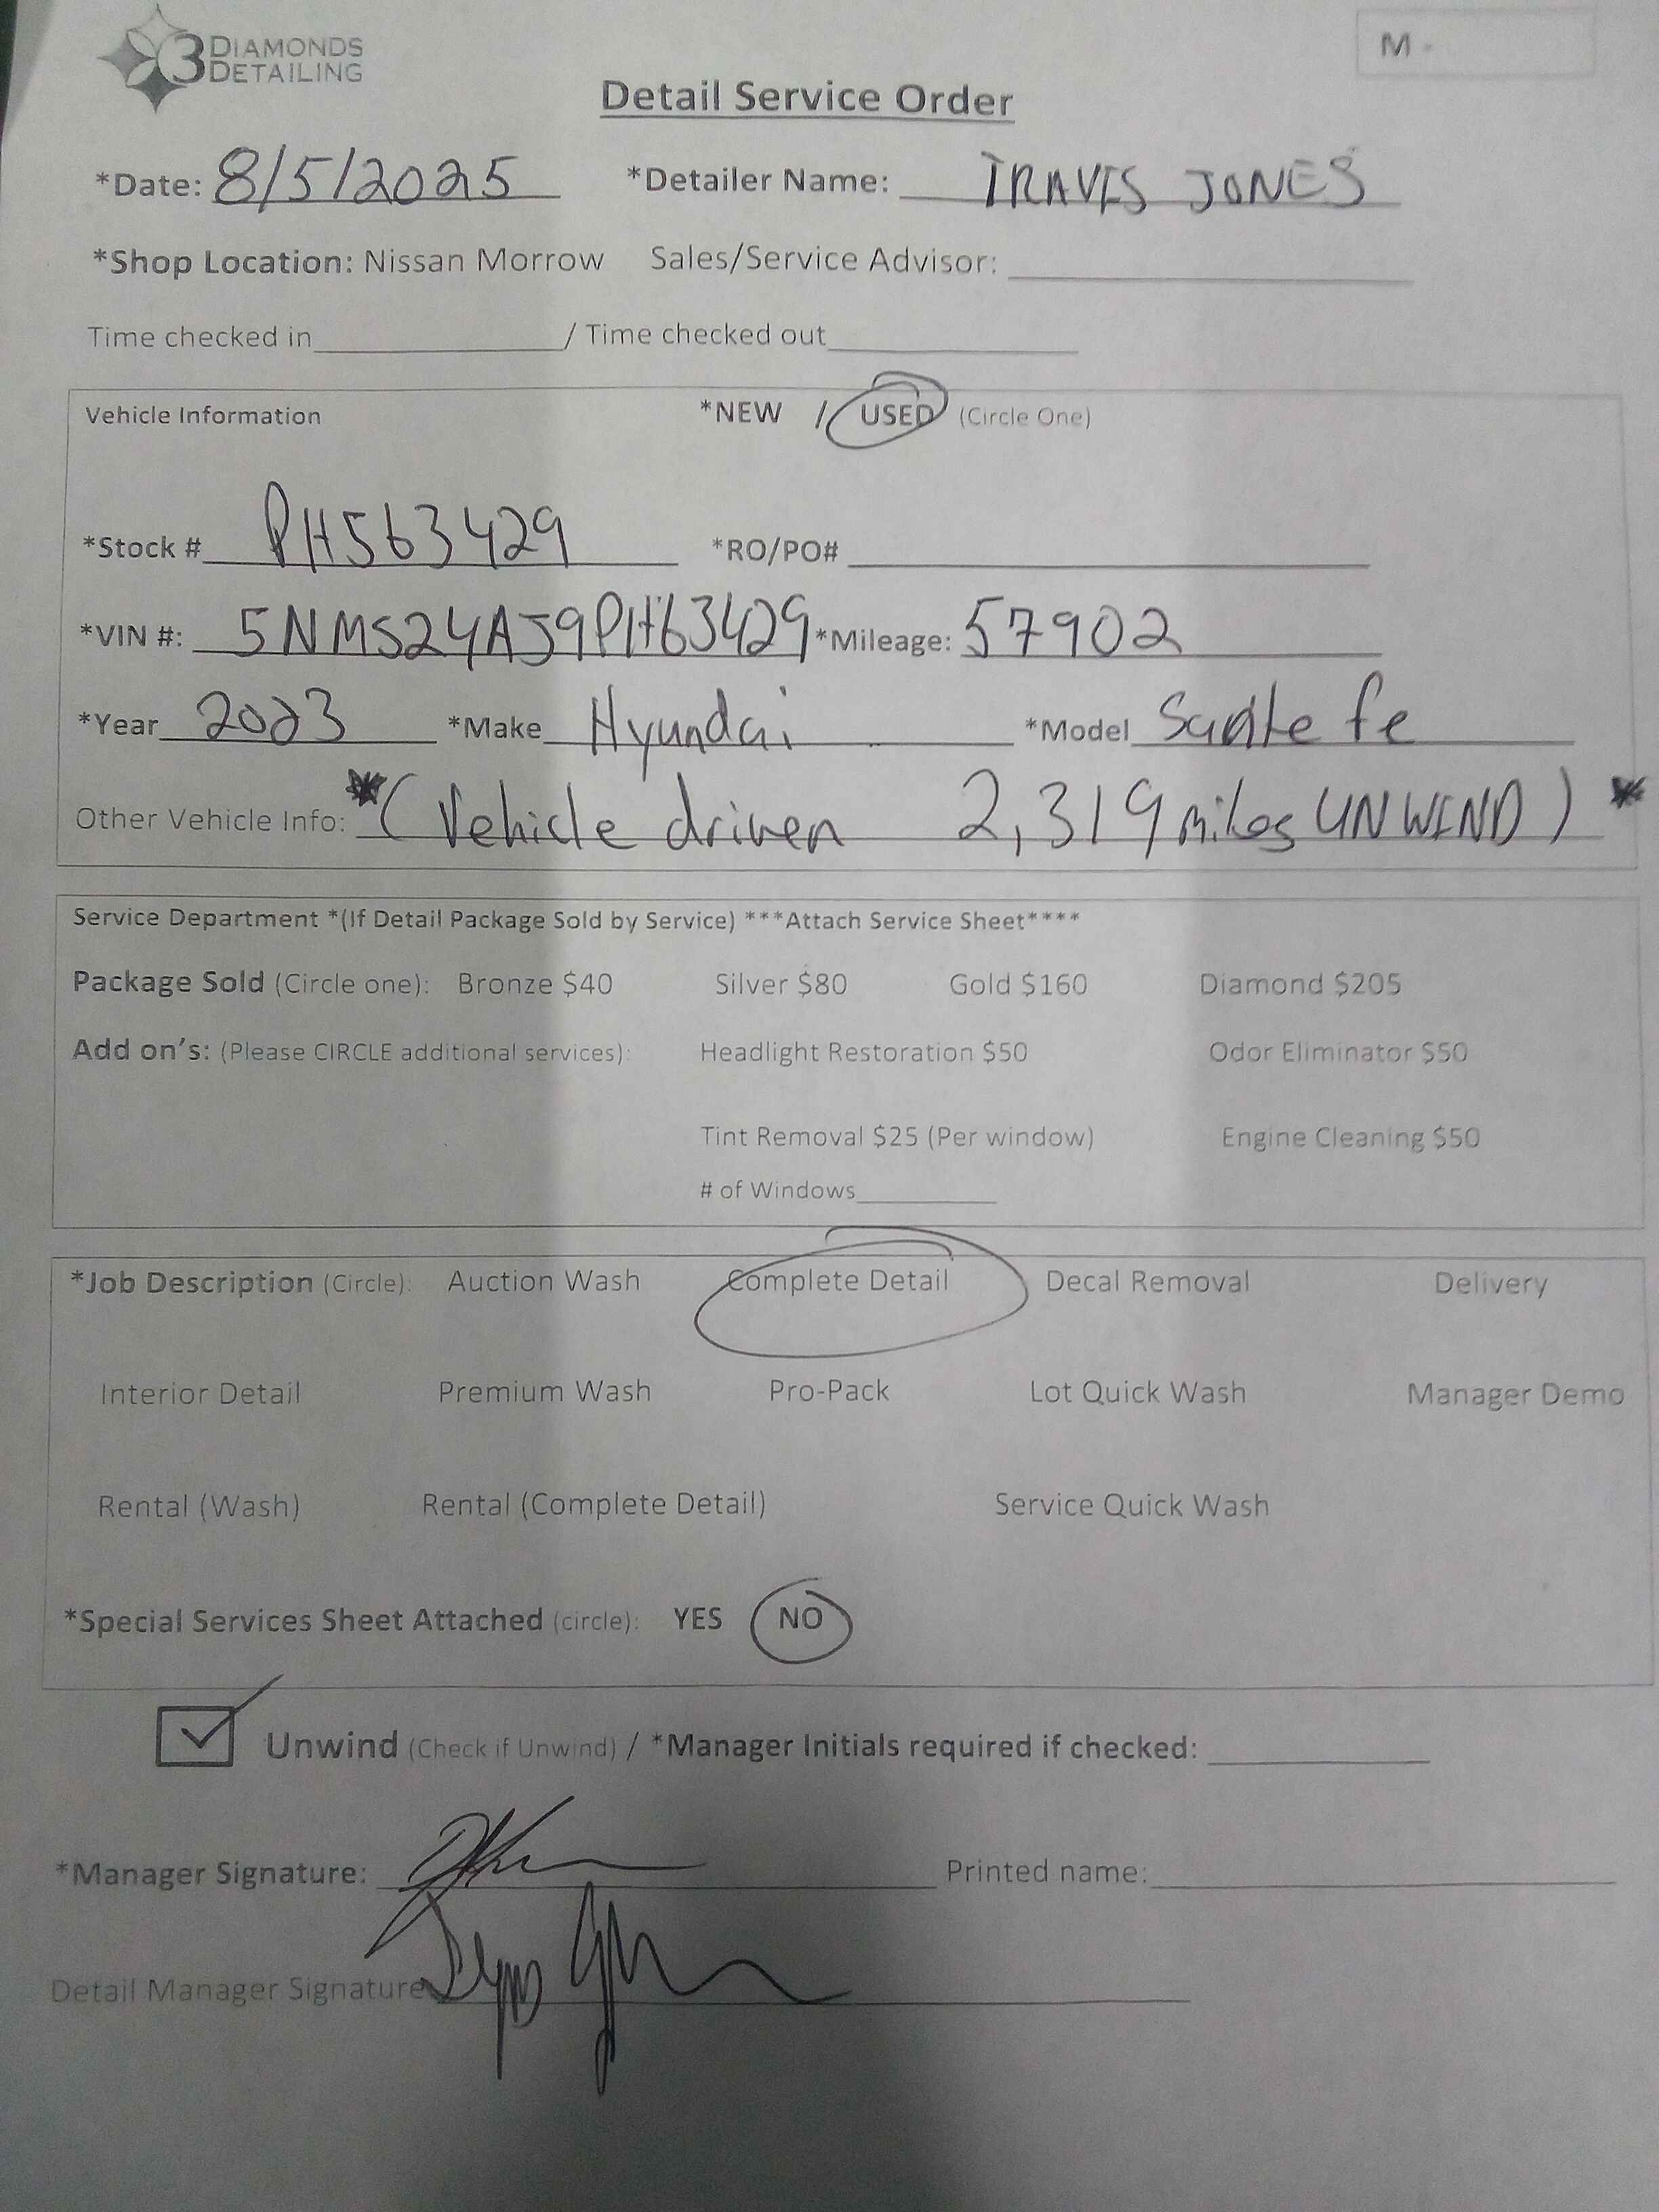 3 DIAMONDS DETAILING
M -
Detail Service Order
*Date: 8/5/2025 *Detailer Name: TRAVIS JONES
*Shop Location: Nissan Morrow Sales/Service Advisor:
Time checked in / Time checked out
Vehicle Information *NEW / USED (Circle One)
*Stock # PH563429 *RO/PO#
*VIN #: 5NMS24AJ9PH63429 *Mileage: 57902
*Year 2023 *Make Hyundai *Model Sante fe
Other Vehicle Info: *( Vehicle driven 2,319 miles UNWIND ) *
Service Department *(If Detail Package Sold by Service) ***Attach Service Sheet****
Package Sold (Circle one): Bronze $40 Silver $80 Gold $160 Diamond $205
Add on's: (Please CIRCLE additional services): Headlight Restoration $50 Odor Eliminator $50
Tint Removal $25 (Per window) Engine Cleaning $50
# of Windows
*Job Description (Circle): Auction Wash Complete Detail Decal Removal Delivery
Interior Detail Premium Wash Pro-Pack Lot Quick Wash Manager Demo
Rental (Wash) Rental (Complete Detail) Service Quick Wash
*Special Services Sheet Attached (circle): YES NO
Unwind (Check if Unwind) / *Manager Initials required if checked:
*Manager Signature: Printed name:
Detail Manager Signature